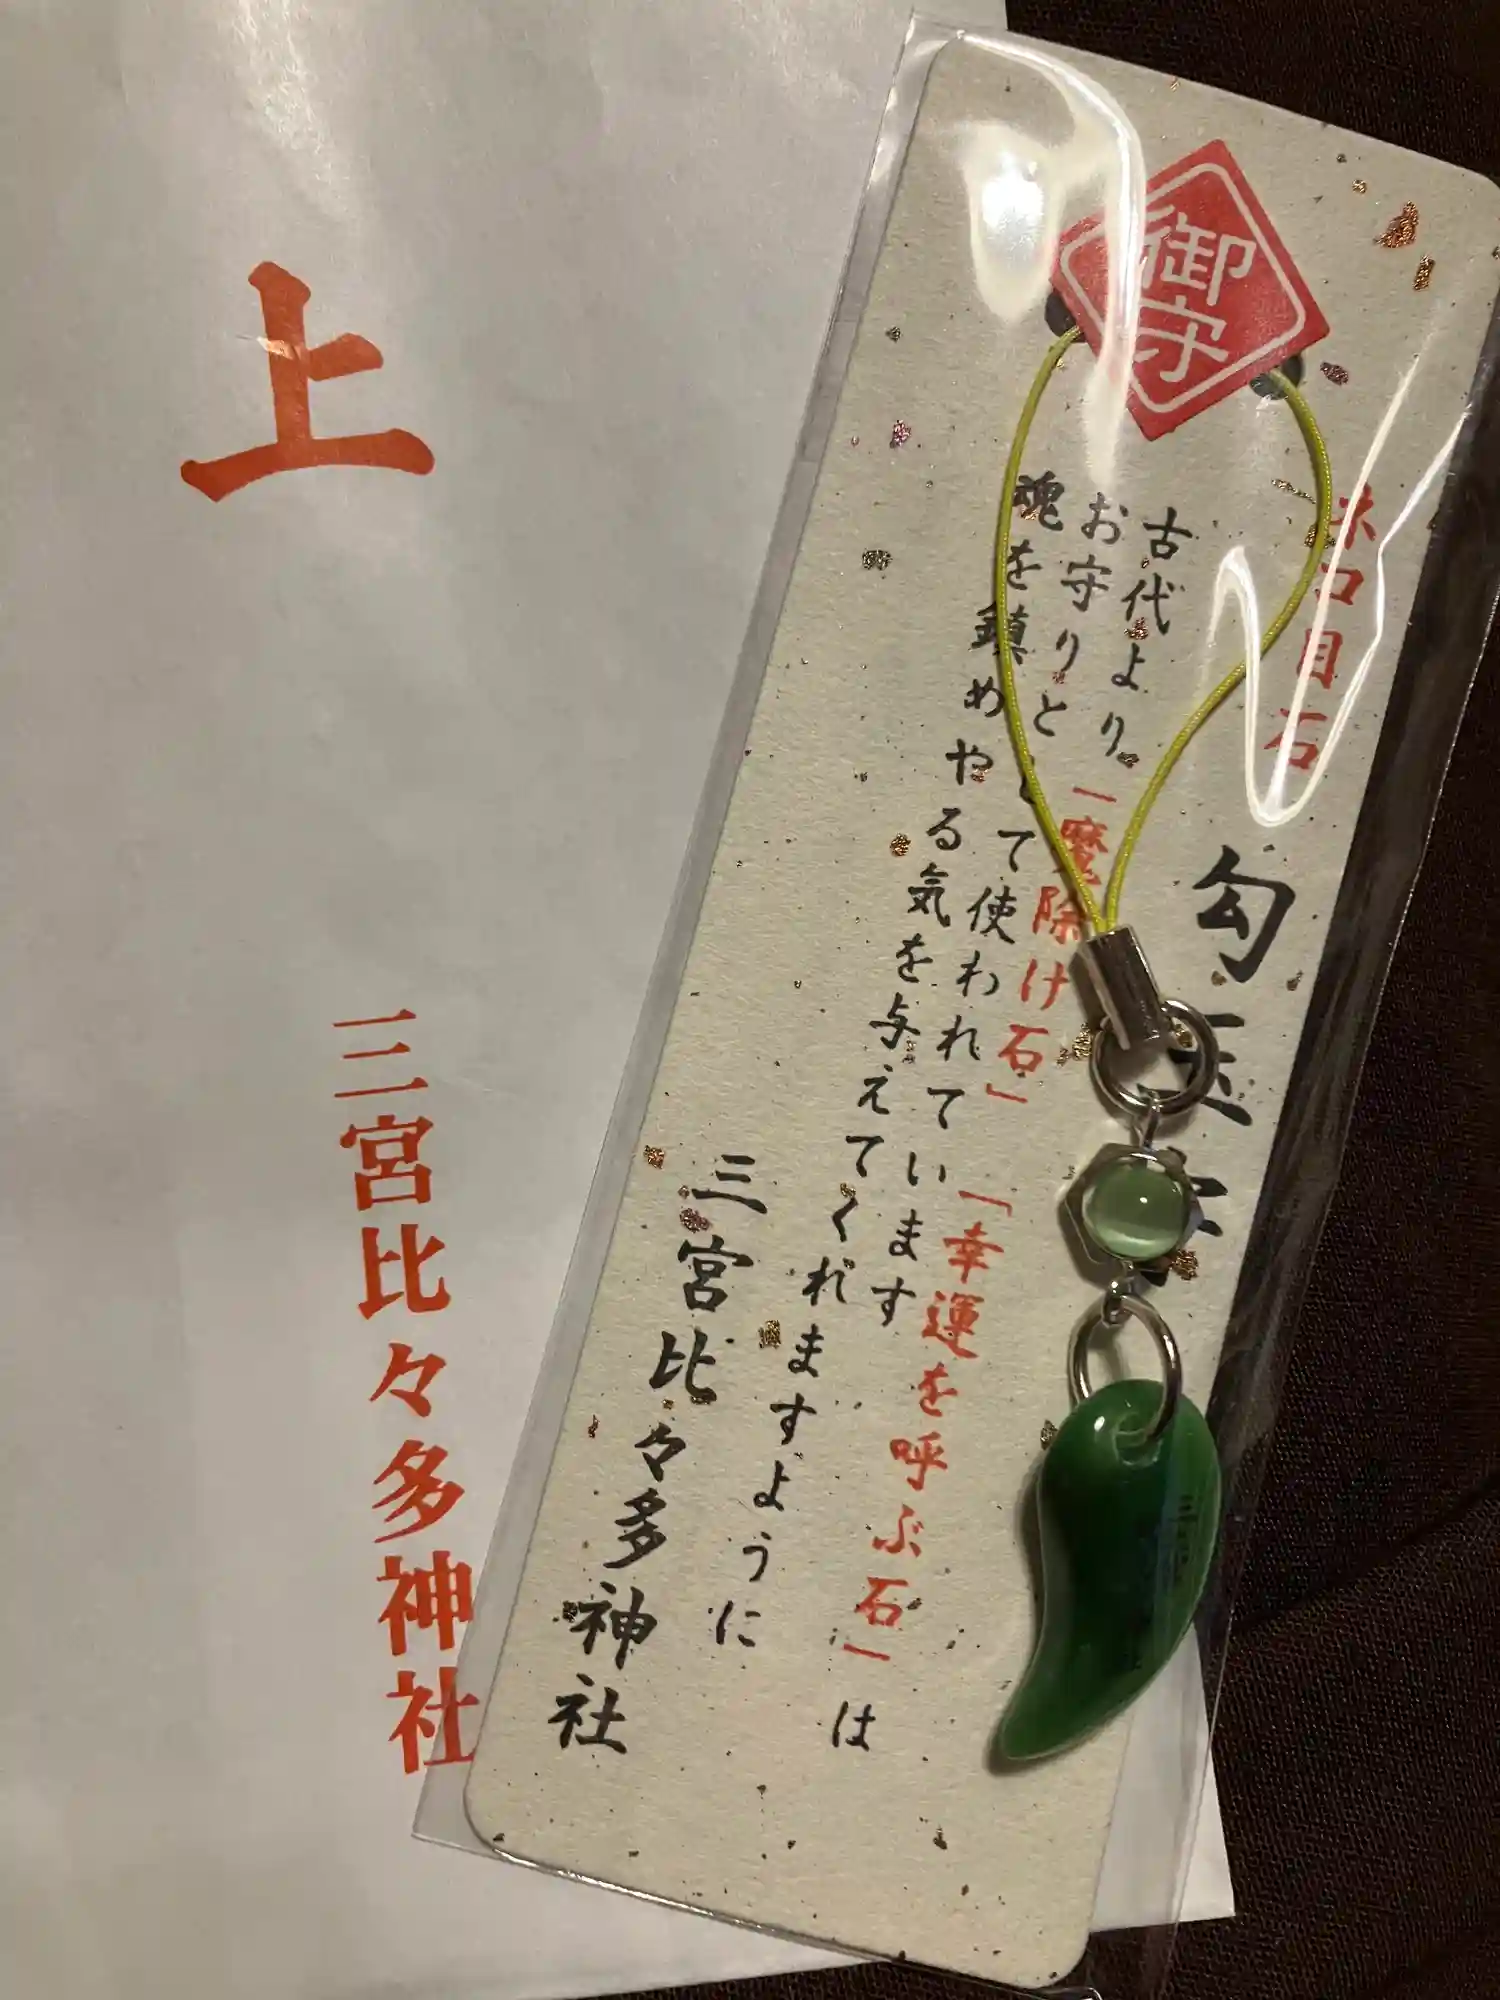 上
三宮比々多神社
御守
ネコ目石
勾玉守
古代より「魔除け石」「幸運を呼ぶ石」は
お守りとして使われています
魂を鎮めやる気を与えてくれますように
三宮比々多神社